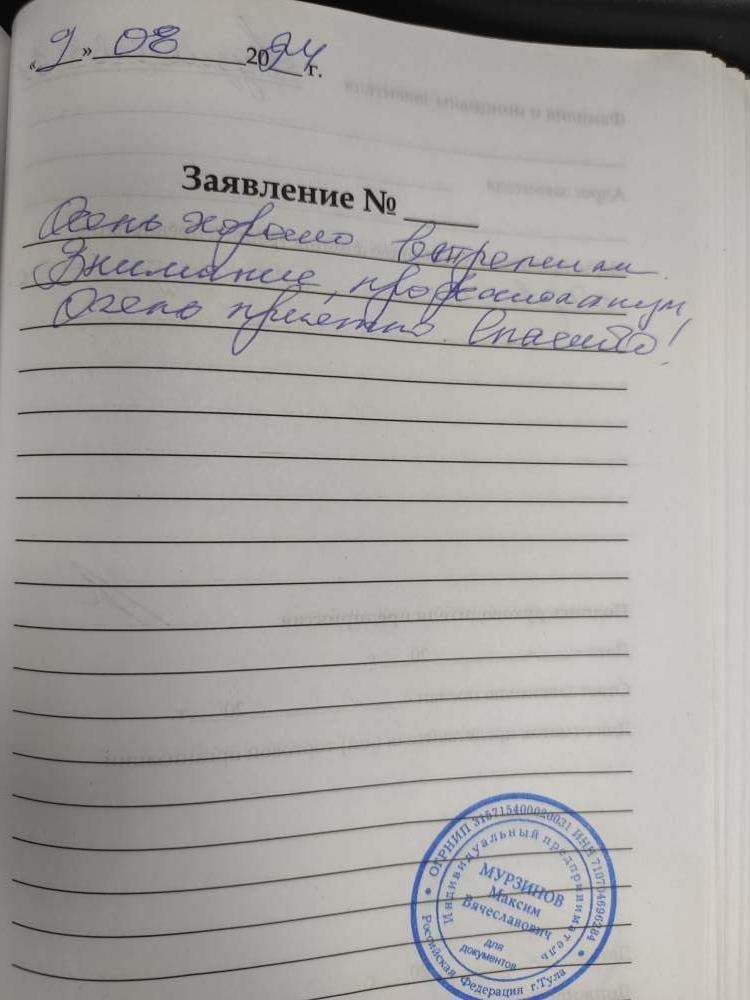 «9» 08 2024 г.
Заявление №
Очень хорошо встретили.
Внимание, профессионализм,
Очень приятно. Спасибо!
ОГРНИП 315715400020031 ИНН 710704696284
Индивидуальный предприниматель
МУРЗИНОВ
Максим
Вячеславович
для
документов
Российская Федерация г.Тула